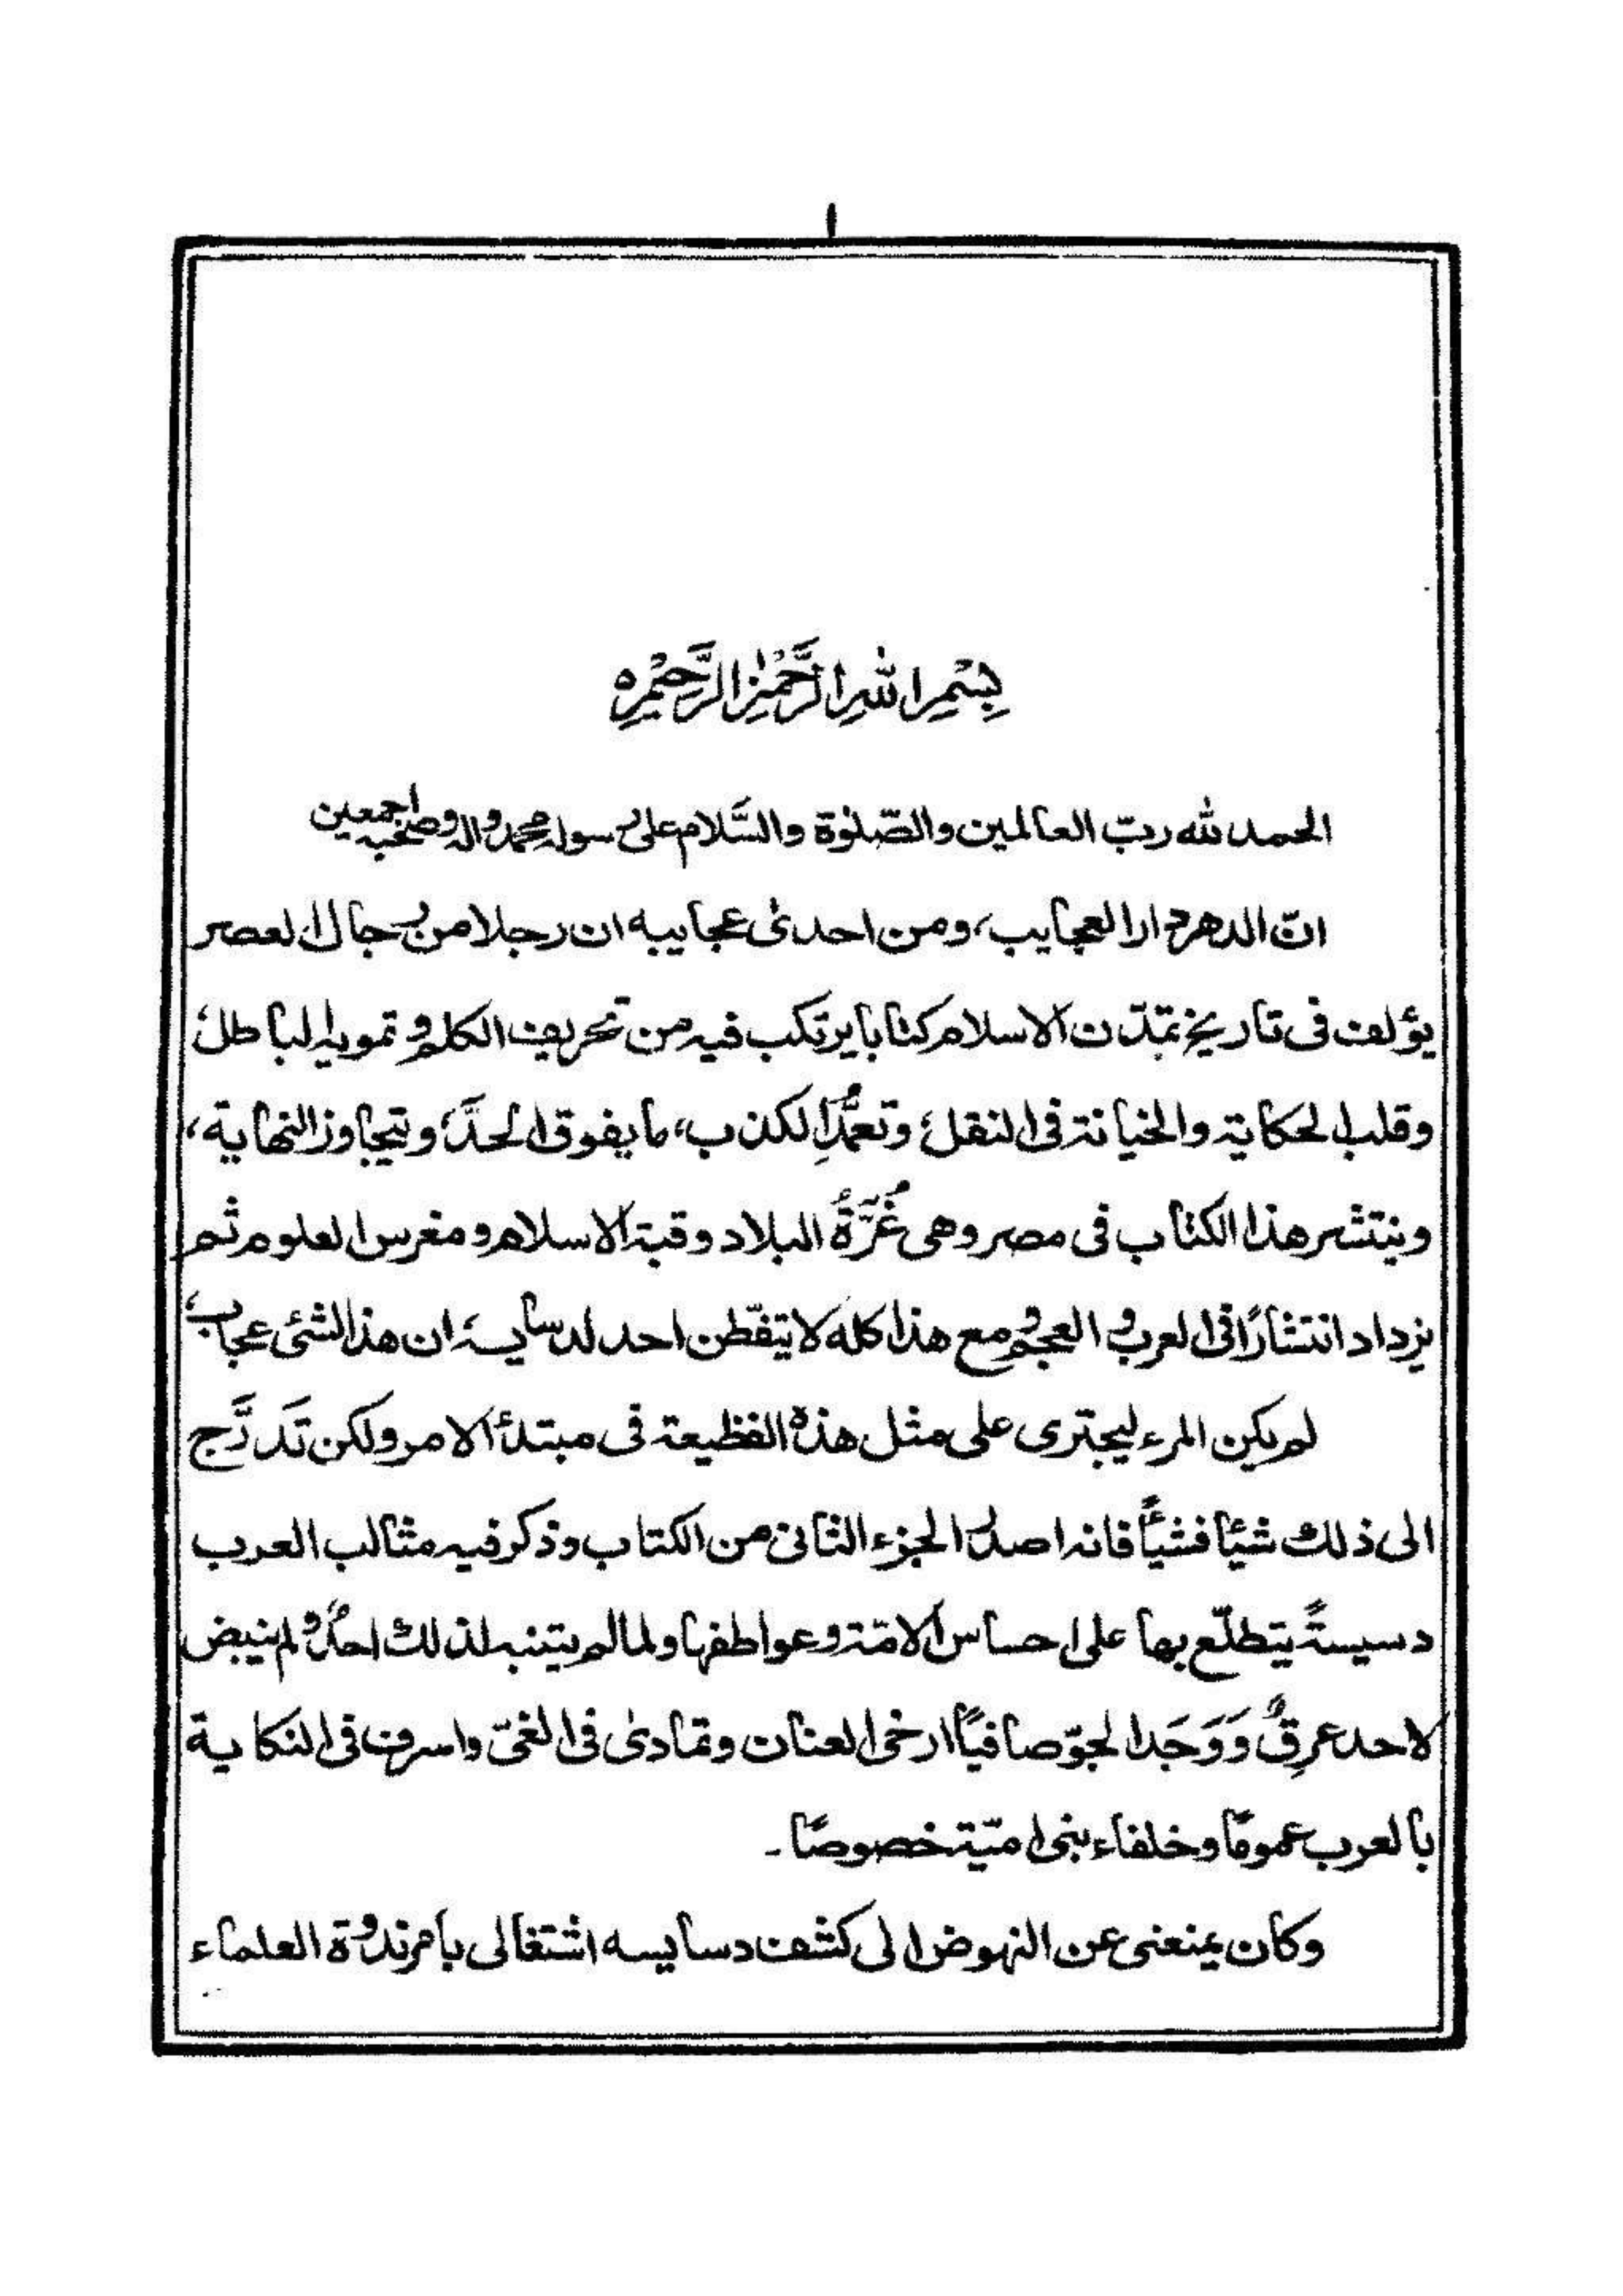 ١
بِسْمِ اللهِ الرَّحْمٰنِ الرَّحِيْمِ ه
الحمد لله ربّ العالمين والصّلوٰة والسَّلام على رسوله محمد واله وصحبه اجمعين
انّ الدهر دار العجايب، ومن احدىٰ عجايبه ان رجلا من رجال العصر
يؤلف فى تاريخ تمدّن الاسلام كتابا يرتكب فيه من تحريف الكلم و تمويه الباطل،
وقلب الحكاية والخيانة فى النقل، وتعمُّدِ الكذب، ما يفوق الحدَّ، و يتجاوز النهاية،
وينتشر هذا الكتاب فى مصر وهى غُرَّةُ البلاد وقبة الاسلام و مغرس العلوم ثم
يزداد انتشارًا فى العرب و العجم و مع هذا كله لا يتفطّن احد لدسايسه ان هذا لشئ عجاب،
لم يكن المرء ليجترى على مثل هذه الفظيعة فى مبتدأ الامر ولكن تَدرَّج
الى ذلك شيًا فشيًأ فانه اصدر الجزء الثانى من الكتاب وذكر فيه مثالب العرب
دسيسةً يتطلّع بها على احساس الامّة وعواطفها ولما لم يتنبه لذلك احدٌ و لم ينبض
لاحد عرقٌ وَوَجَدَ الجوّ صافيًا ارخى العنان وتمادىٰ فى الغىّ واسرف فى النكاية
بالعرب عمومًا وخلفاء بنى اميّة خصوصًا ـ
وكان يمنعنى عن النهوض الى كشف دسايسه اشتغالى بامر ندوة العلماء